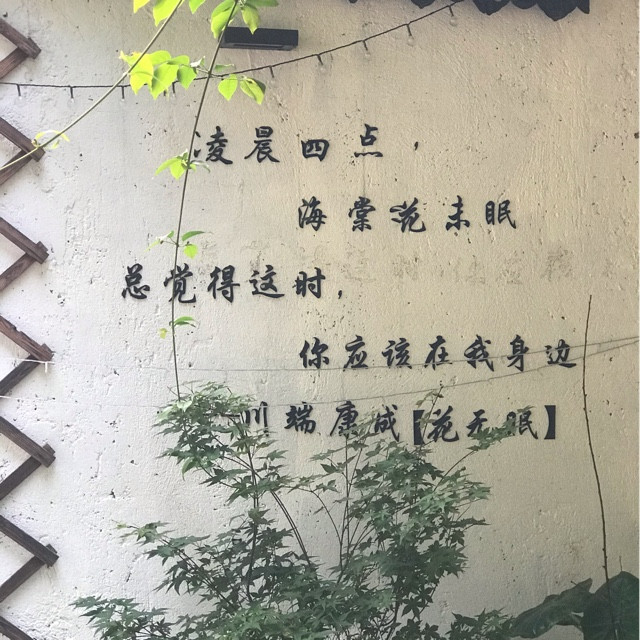 凌晨四点，
海棠花未眠
总觉得这时，
你应该在我身边
川端康成【花无眠】